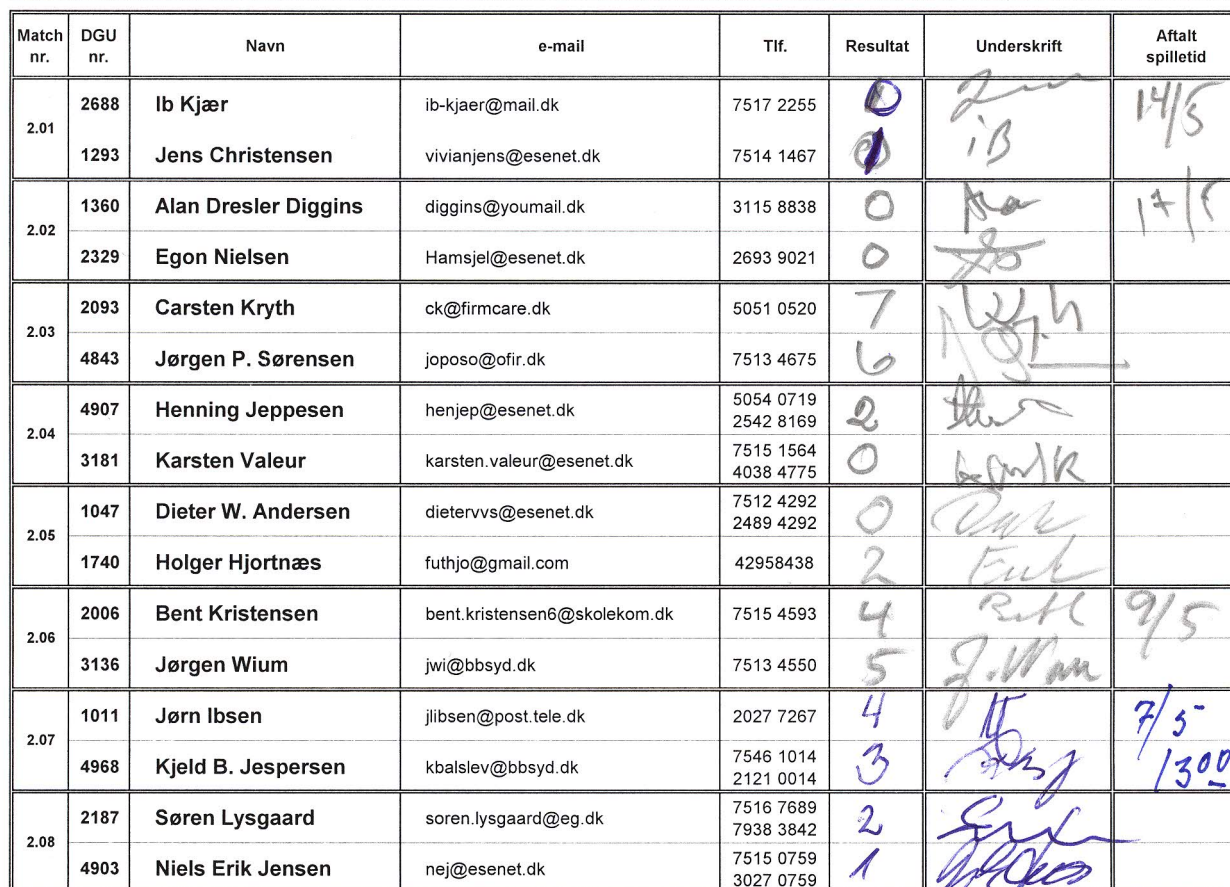 Match nr. DGU nr. Navn e-mail Tlf. Resultat Underskrift Aftalt spilletid
2.01
2688 Ib Kjær ib-kjaer@mail.dk 7517 2255 0 14/5
1293 Jens Christensen vivianjens@esenet.dk 7514 1467 1 iB
2.02
1360 Alan Dresler Diggins diggins@youmail.dk 3115 8838 0
2329 Egon Nielsen Hamsjel@esenet.dk 2693 9021 0
2.03
2093 Carsten Kryth ck@firmcare.dk 5051 0520 7
4843 Jørgen P. Sørensen joposo@ofir.dk 7513 4675 6
2.04
4907 Henning Jeppesen henjep@esenet.dk 5054 0719 2
2542 8169
3181 Karsten Valeur karsten.valeur@esenet.dk 7515 1564 0
4038 4775
2.05
1047 Dieter W. Andersen dietervvs@esenet.dk 7512 4292 0
2489 4292
1740 Holger Hjortnæs futhjo@gmail.com 42958438 2
2.06
2006 Bent Kristensen bent.kristensen6@skolekom.dk 7515 4593 4 9/5
3136 Jørgen Wium jwi@bbsyd.dk 7513 4550 5
2.07
1011 Jørn Ibsen jlibsen@post.tele.dk 2027 7267 4 7/5
4968 Kjeld B. Jespersen kbalslev@bbsyd.dk 7546 1014 3 1300
2121 0014
2.08
2187 Søren Lysgaard soren.lysgaard@eg.dk 7516 7689 2
7938 3842
4903 Niels Erik Jensen nej@esenet.dk 7515 0759 1
3027 0759